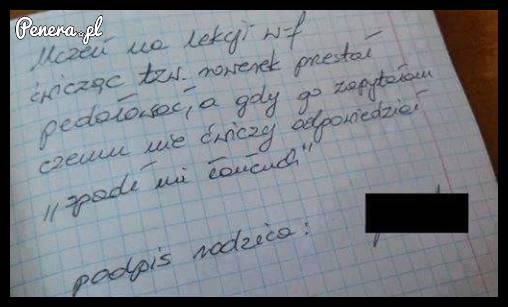 Penera.pl
Uczeń na lekcji w-f
ćwicząc tzw. rowerek przestał
pedałować, a gdy go zapytałam
czemu nie ćwiczy odpowiedział
"spadł mi łańcuch"
podpis rodzica: